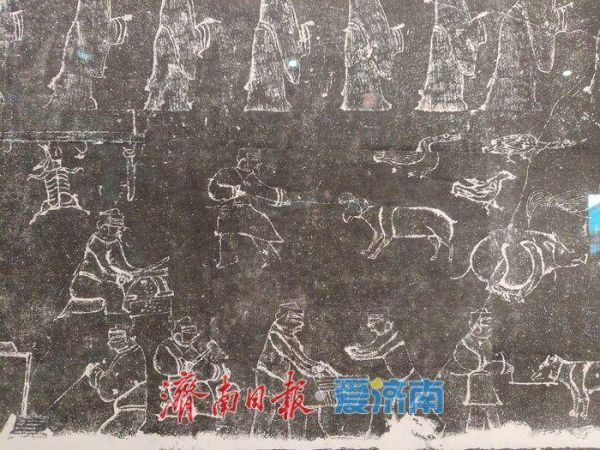 濟南日報 爱济南